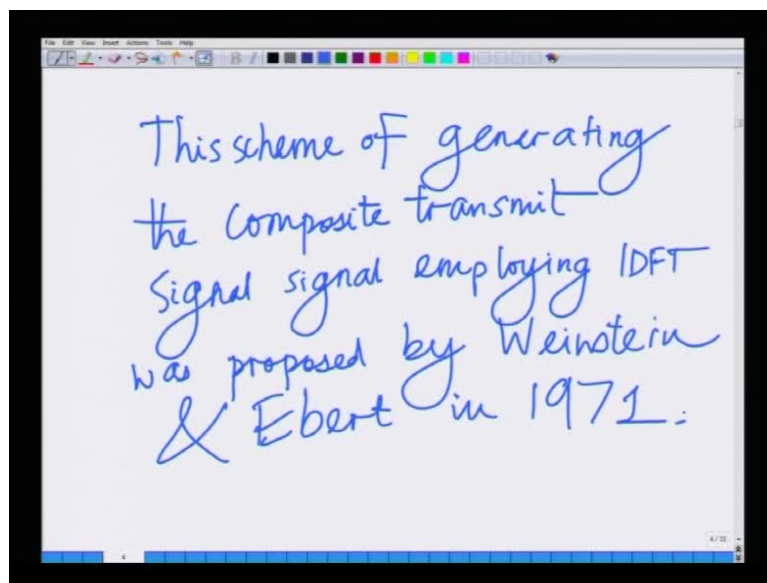 File Edit View Insert Actions Tools Help
This scheme of generating
the composite transmit
Signal signal employing IDFT
was proposed by Weinstein
& Ebert in 1971.